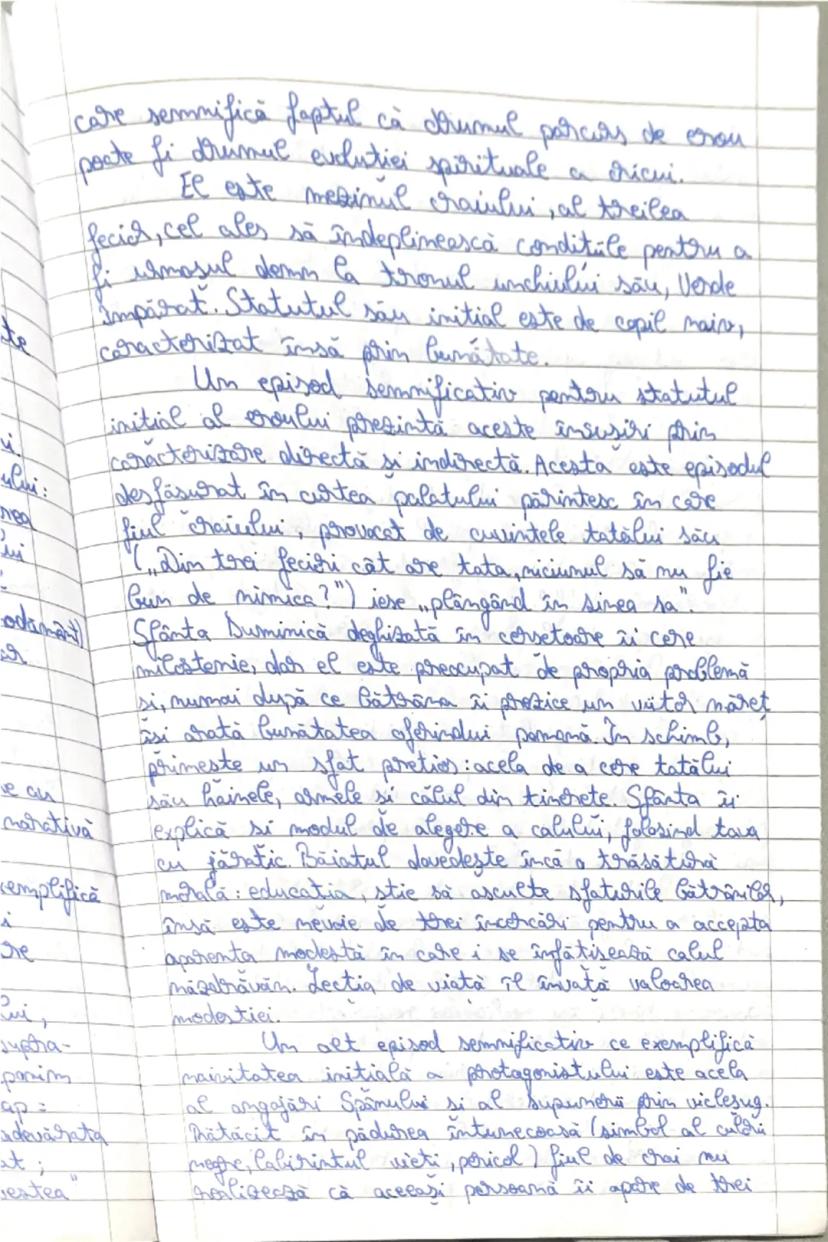 care semnifică faptul că drumul parcurs de erou
poate fi drumul evoluției spirituale a oricui.
El este mezinul craiului, al treilea
fecior, cel ales să îndeplinească condițiile pentru a
fi urmașul demn la tronul unchiului său, Verde
Împărat. Statutul său inițial este de copil naiv,
caracterizat însă prin bunătate.
Un episod semnificativ pentru statutul
inițial al eroului prezintă aceste însușiri prin
caracterizare directă și indirectă. Acesta este episodul
desfășurat în curtea palatului părintesc în care
fiul craiului, provocat de cuvintele tatălui său
(„Din trei feciori cât are tata, niciunul să nu fie
bun de nimica?") iese „plângând în sinea sa".
Sfânta Duminică deghizată în cerșetoare îi cere
milostenie, dar el este preocupat de propria problemă
și, numai după ce bătrâna îi prezice un viitor măreț
își arată bunătatea oferindu-i pomană. În schimb,
primește un sfat prețios: acela de a cere tatălui
său hainele, armele și calul din tinerețe. Sfânta îi
explică și modul de alegere a calului, folosind tava
cu jăratic. Băiatul dovedește încă o trăsătură
morală: educația, știe să asculte sfaturile bătrânilor,
însă este nevoie de trei încercări pentru a accepta
aparența modestă în care i se înfățisează calul
năzdrăvan. Lecția de viață îl învață valoarea
modestiei.
Un alt episod semnificativ ce exemplifică
naivitatea inițială a protagonistului este acela
al angajări Spânului și al supunerii prin vicleșug.
Rătăcit în pădurea întunecoasă (simbol al culorii
negre, labirintul vieți, pericol) fiul de crai nu
realizează că aceeași persoană îi apare de trei
te
ui.
ului:
nea
lui
odământ)
or
e cu
narativă
exemplifică
i
re
lui,
supra-
ponim
ap:
adevărata
at;
vestea"